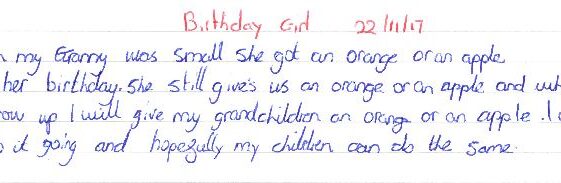 Birthday Girl 22/11/17
my Granny was small she got an orange or an apple
her birthday. She still give's us an orange or an apple and
up I will give my grandchildren an orang or an apple. I
it going and hopefully my children can do the same.